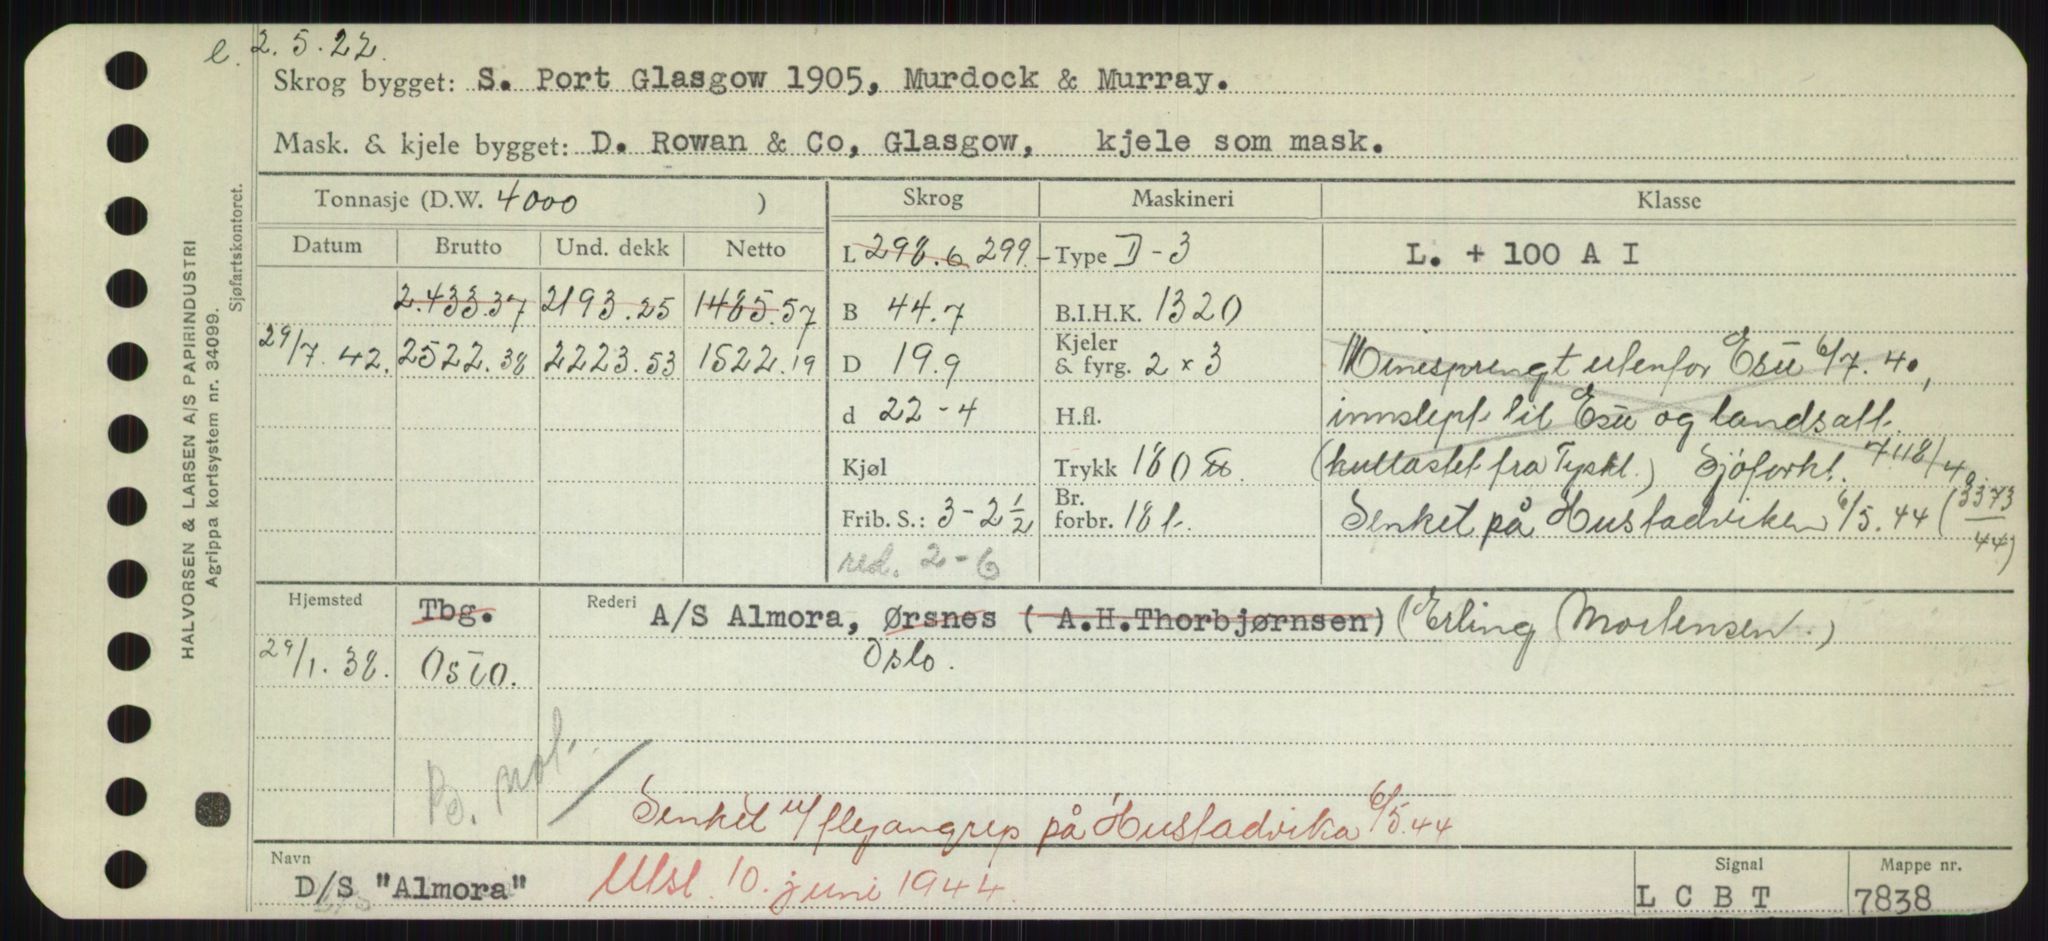 e. 2.5.22.
Skrog bygget: S. Port Glasgow 1905, Murdock & Murray.
Mask. & kjele bygget: D. Rowan & Co, Glasgow, kjele som mask.
Tonnasje (D.W. 4000 ) Skrog Maskineri Klasse
Datum Brutto Und. dekk Netto L 298.6 299. Type D-3 L. + 100 A I
2.433.37 2193.25 1485.57 B 44.7 B.I.H.K. 1320
29/7.42. 2522.38 2223.53 1522.19 D 19.9 Kjeler & fyrg. 2 x 3 Minesprengt utenfor Esü 6/7.40,
d 22-4 H.fl. innslept til Esü og landsatt.
Kjøl Trykk 180 (kullastet fra Tyskl.) Sjøforkl. 7118/40
Frib. S.: 3-2½ Br. forbr. 18 t. Senket på Hustadviken 6/5.44 (3373/44)
red. 2-6
Hjemsted Tbg. Rederi A/S Almora, Ørsnes (A.H.Thorbjørnsen) (Erling Mortensen.)
29/1.38. Oslo. Oslo.
Senket v/flyangrep på Hustadvika 6/5.44
Navn Signal Mappe nr.
D/S "Almora" Utsl. 10. juni 1944. L C B T 7838
HALVORSEN & LARSEN A/S PAPIRINDUSTRI
Agrippa kortsystem nr. 34099.
Sjøfartskontoret.